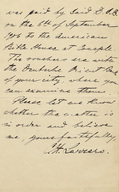 was paid by Said D. A. B.
on the 6th of September
1906 to the American
Bible House at Temple
The vouchers are with
the
of your city where you
can examine them.
Please let me know
whether the matter is
in order and believe
me yours faithfully